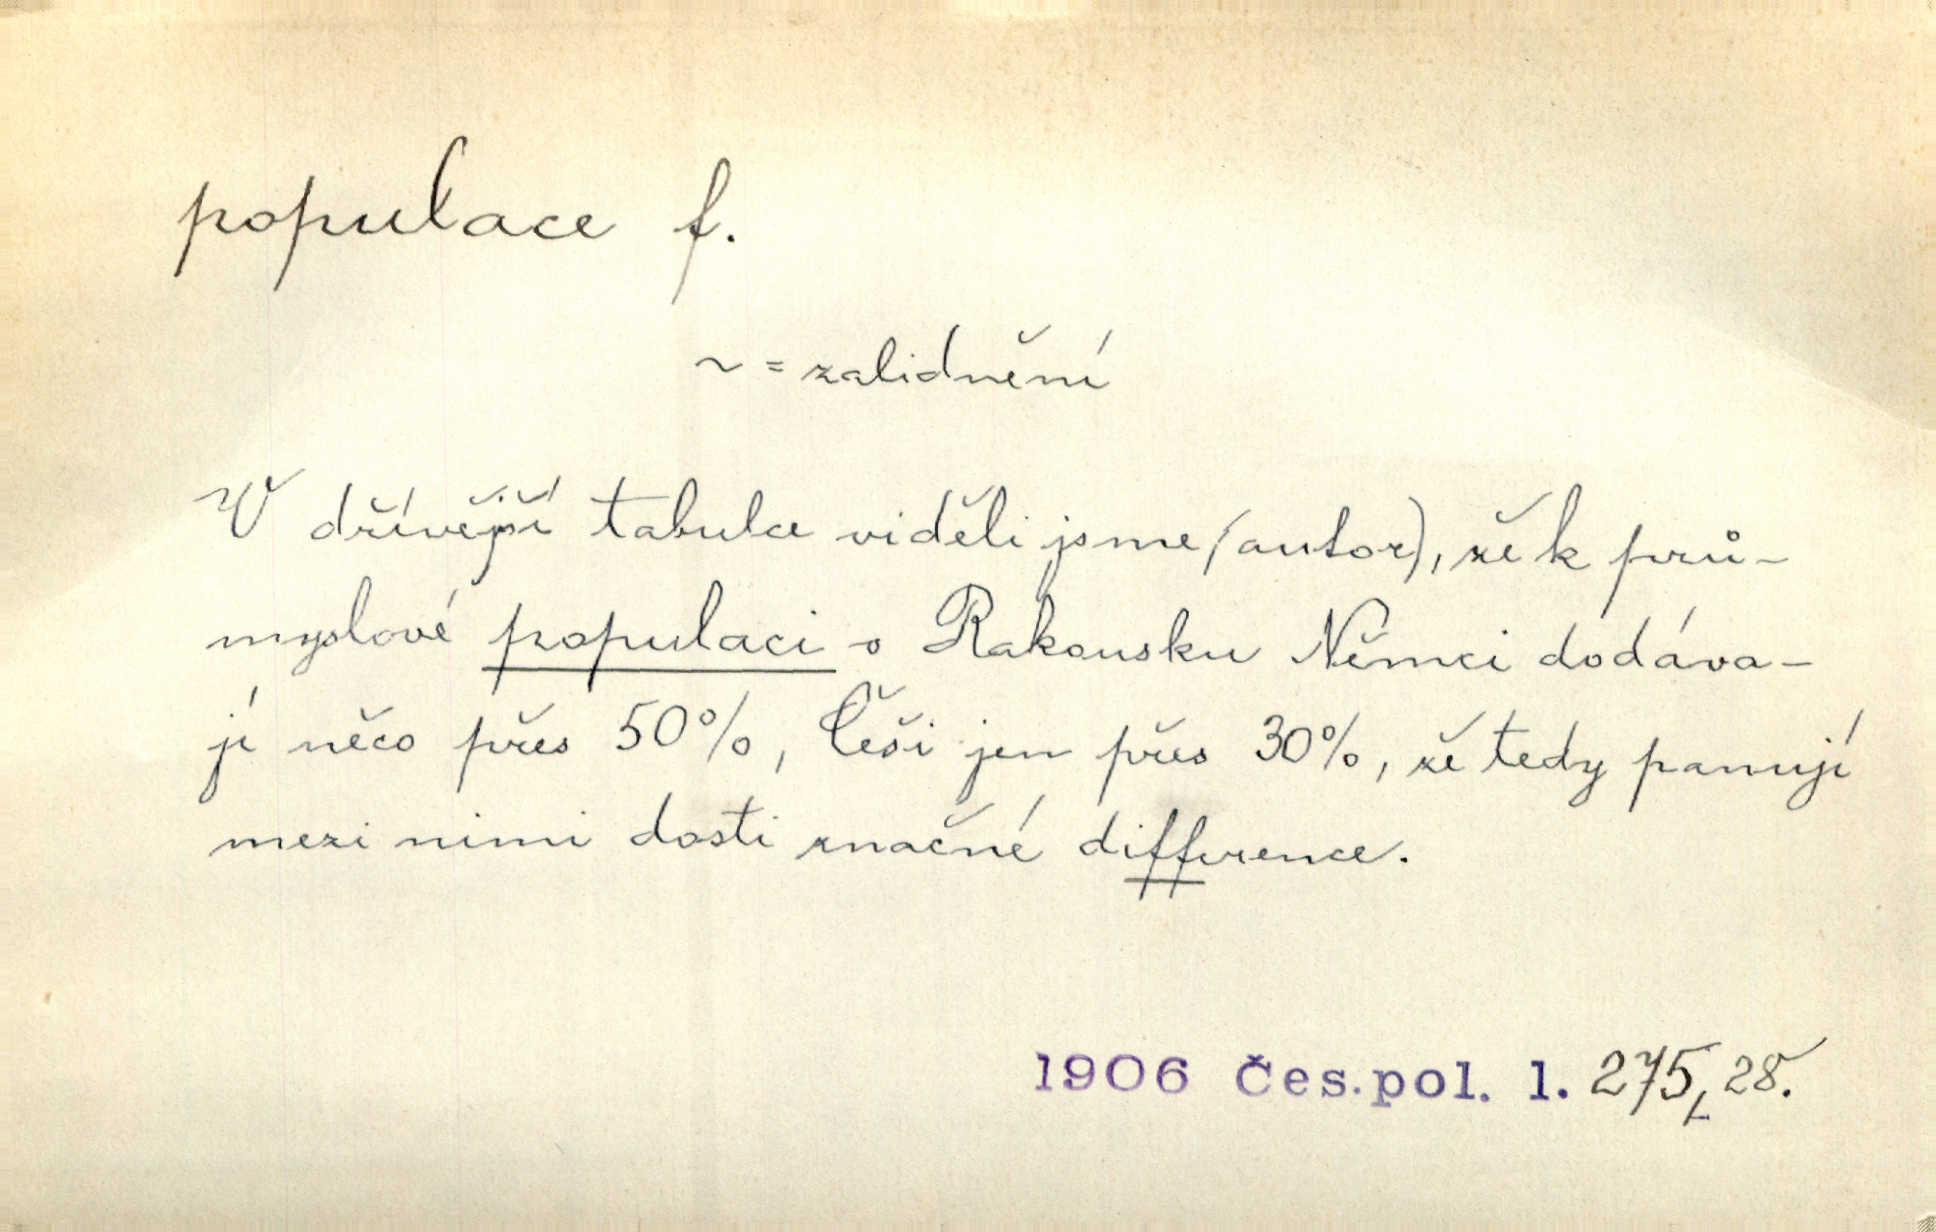 populace f.
~ = zalidnění
V dřívější tabulce viděli jsme (autor), že k prů-
myslové populaci v Rakousku Němci dodáva-
jí něco přes 50%, Češi jen přes 30%, že tedy panují
mezi nimi dosti značné difference.
1906 Čes. pol. l. 275, 28.